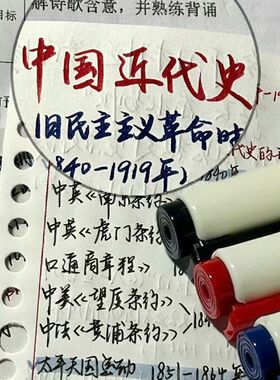 解诗歌含意，并熟练背诵
中国近代史
旧民主主义革命时
840-1919年）
代史的
1840年
中英《南京条约》
中英《虎门条约》
口通商章程》
中美《望厦条约》
中法《黄埔条约》
太平天国运动 1851-1864年